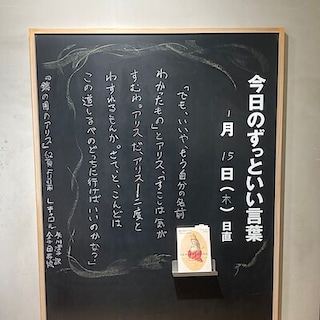 今日のずっといい言葉
1月15日(木)日直
「でも、いいや、もう自分の名前
わかったもの」とアリス、「すこしは気が
すむわ。アリスだ、アリス――二度と
わすれるもんか。さてと、こんどは
この道しるべのどっちに行けばいいのかな?」
『鏡の国のアリス』
矢川澄子 訳